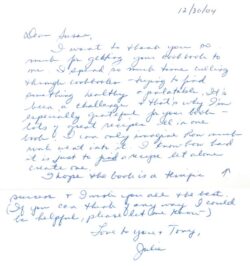 12/30/04
Dear Susan,
I want to thank you so
much for getting your cookbook to
me. I spend so much time looking
through cookbooks - trying to find
something healthy & palatable. It's
been a challenge & that's why I'm
especially grateful for your book -
lots of great recipes all in one
book. I can only imagine how much
work went into it. I know how hard
it is just to find a recipe let alone
create one.
I hope the book is a
success & I wish you all the best.
(If you can think of any way I could
be helpful, please let me know -)
Love to you & Tony,
Julie